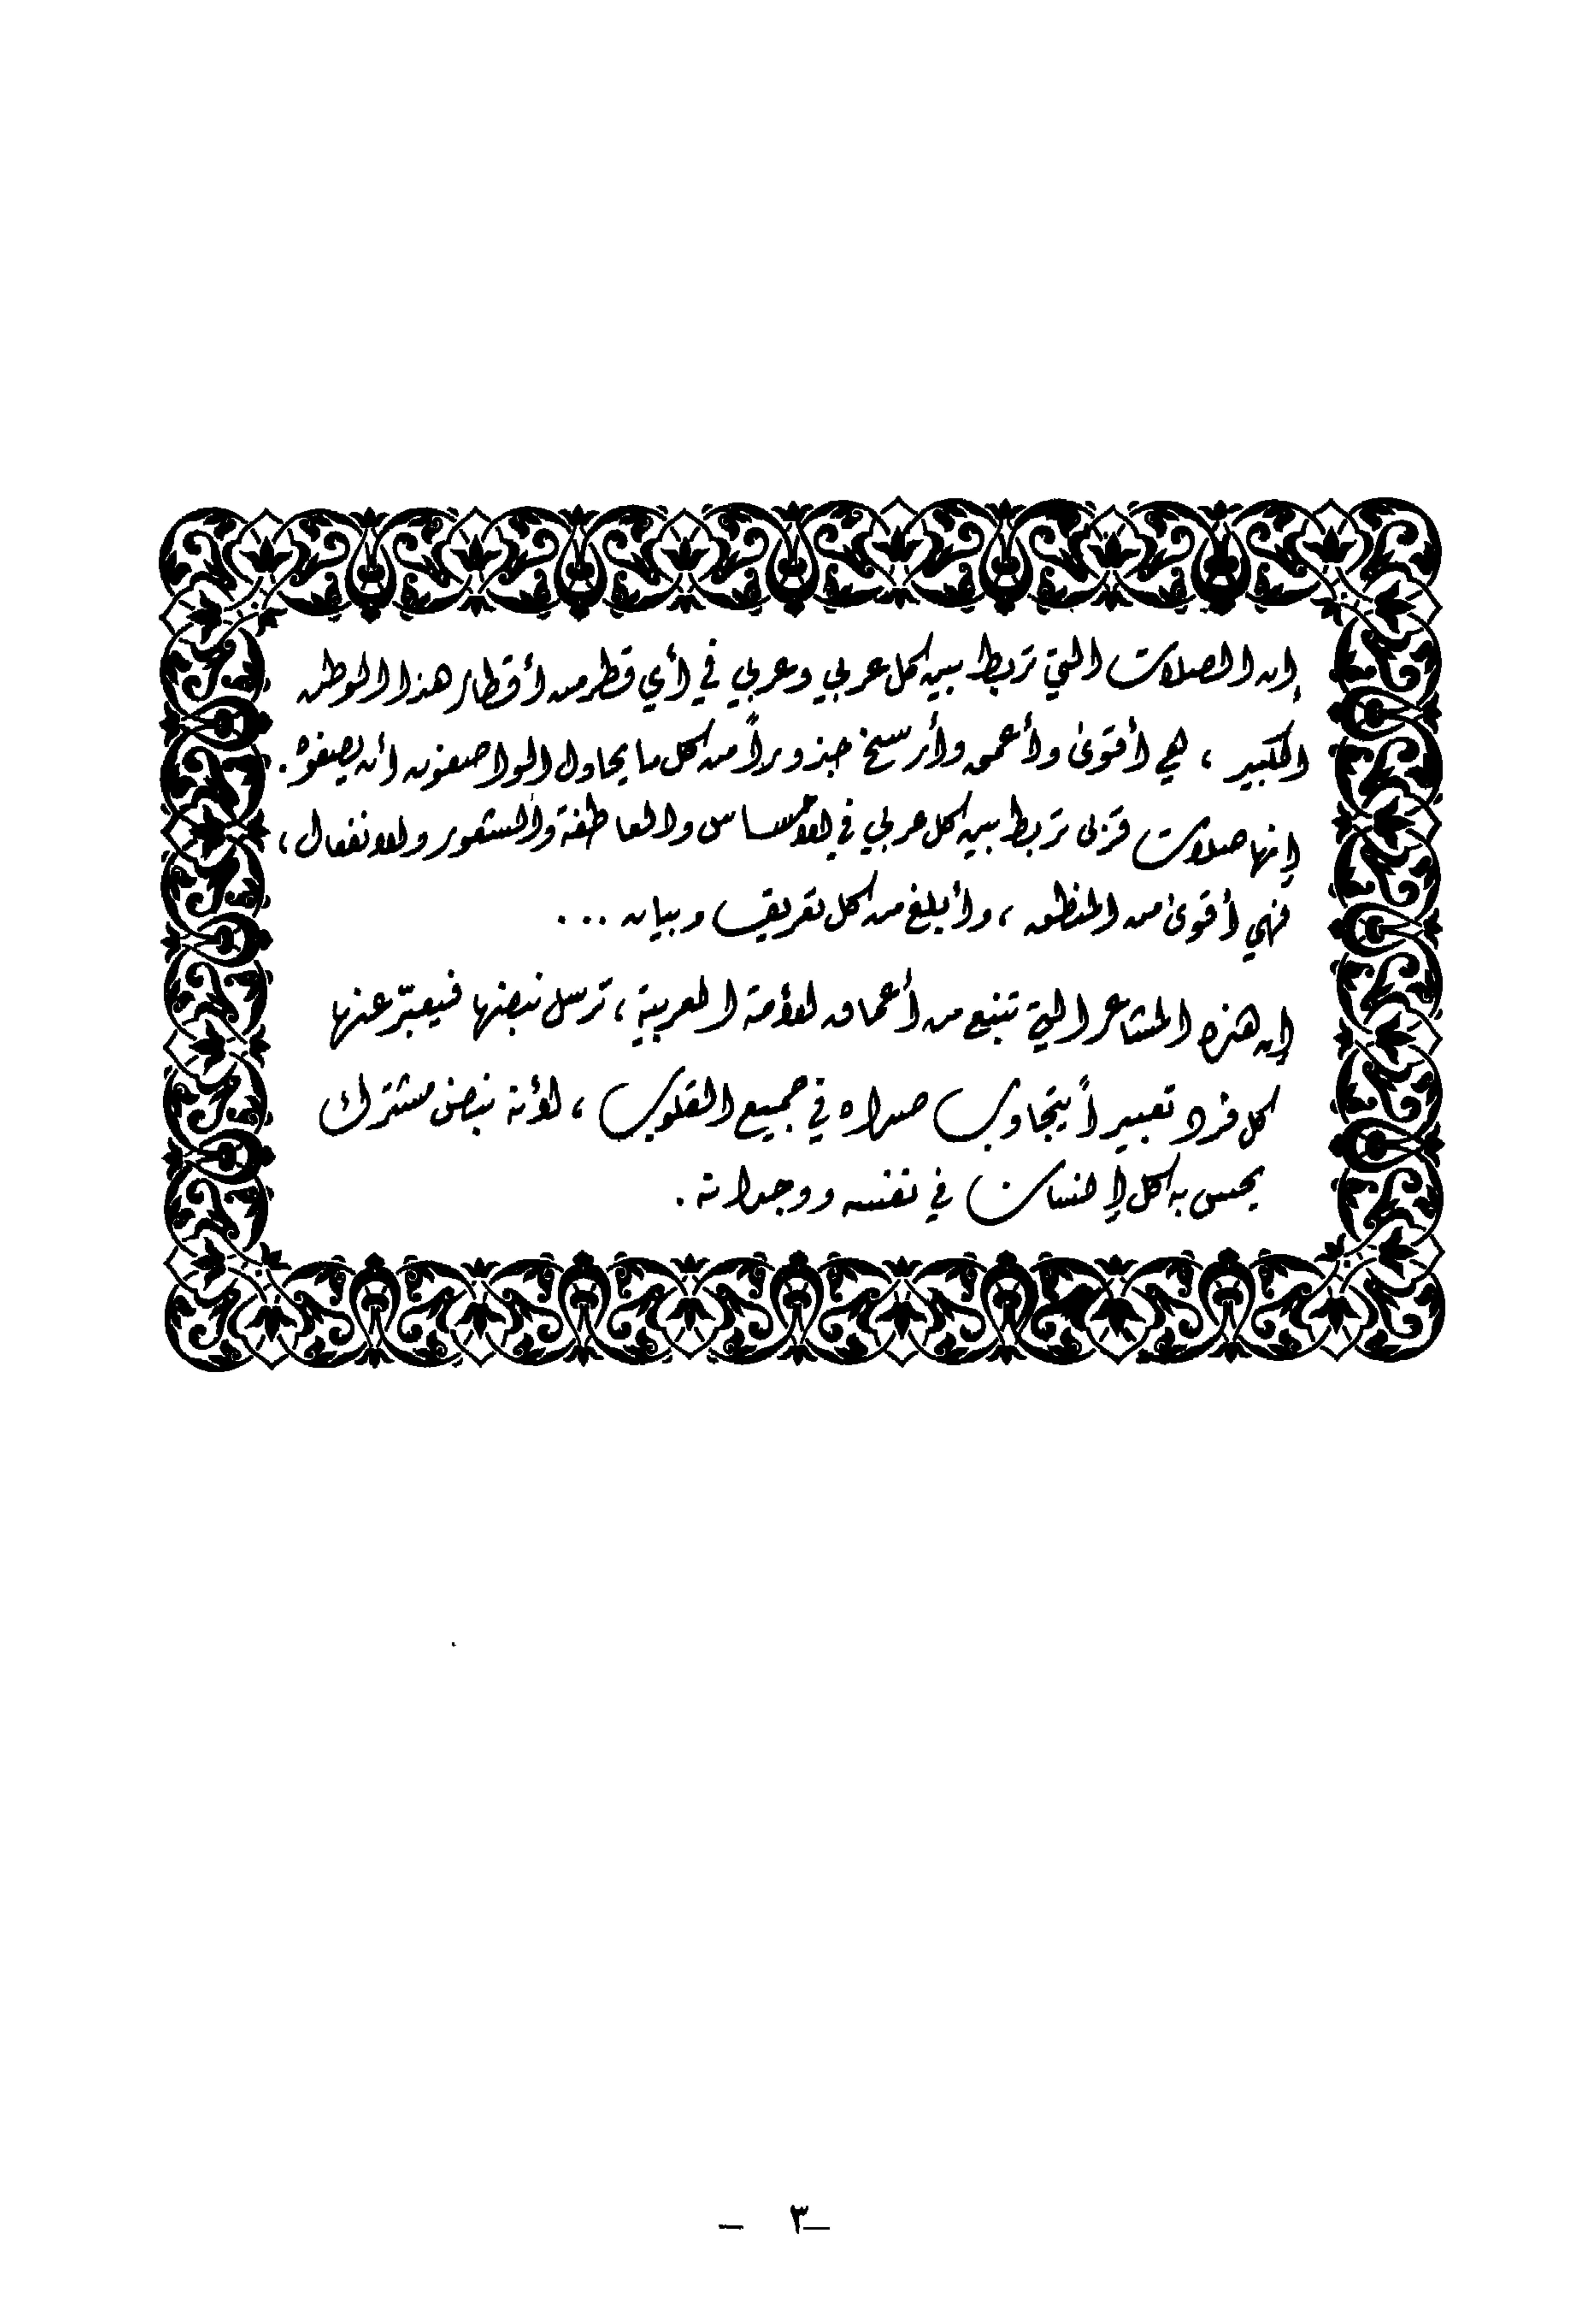 إن الصلات التي تربط بين كل عربي وعربي في أي قطر من أقطار هذا الوطن
الكبير ، هي أقوى وأعمق وأرسخ جذوراً من كل ما يحاول الواصفون أن يصفوه .
إنها صلات قربى تربط بين كل عربي في الإحساس والعاطفة والشعور والانفعال ،
فهي أقوى من المنطق ، وأبلغ من كل تعريف وبيان ...
إن هذه المشاعر التي تنبع من أعماق الأمة العربية ، ترسل نبضها فيعبّر عنها
كل فرد تعبيراً يتجاوب صداه في جميع القلوب ، لأنه نبض مشترك
يحس به كل إنسان في نفسه ووجدانه .
– ٣ –